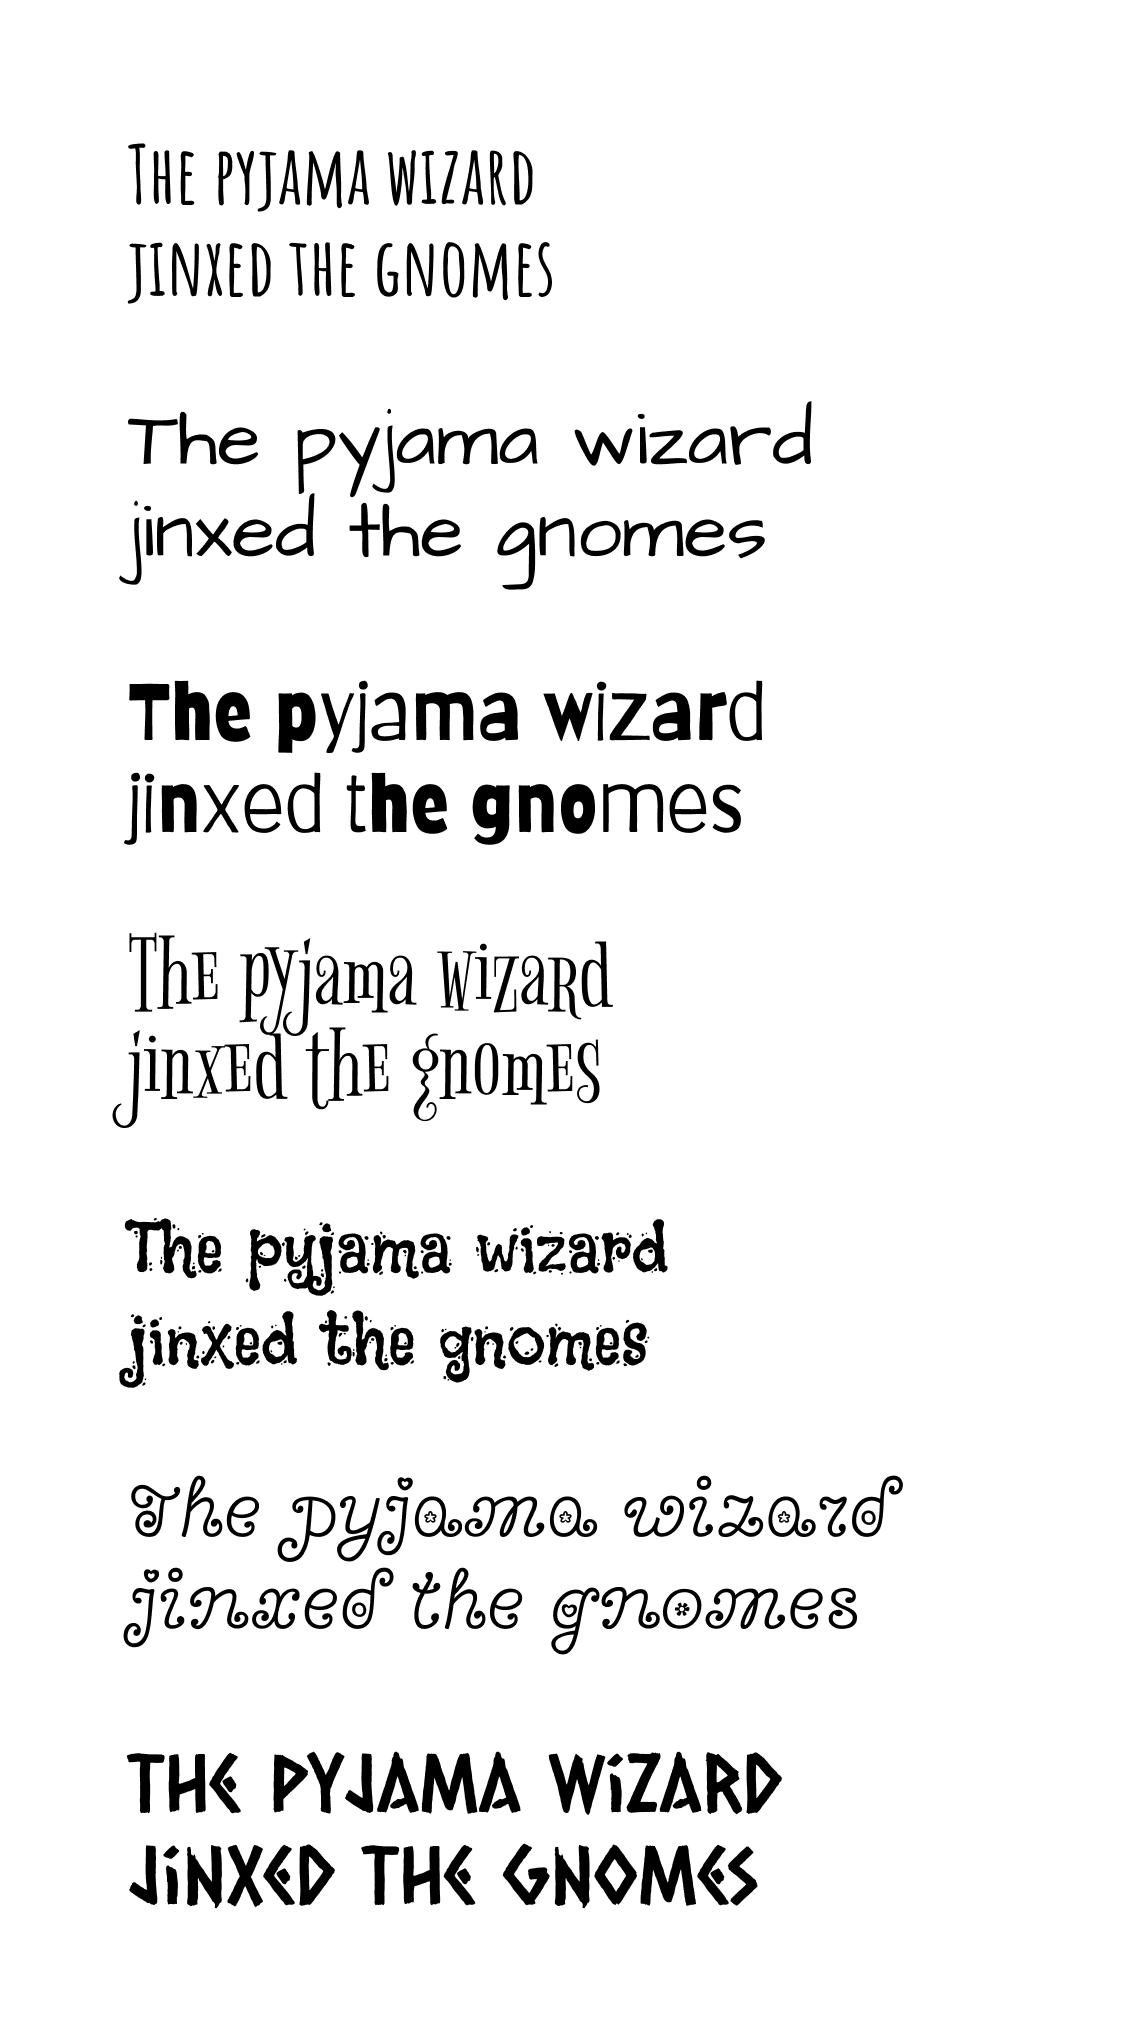 The pyjama wizard
jinxed the gnomes
The pyjama wizard
jinxed the gnomes
The pyjama wizard
jinxed the gnomes
The pyjama wizard
jinxed the gnomes
The pyjama wizard
jinxed the gnomes
The pyjama wizard
jinxed the gnomes
THE PYJAMA WiZARD
JiNXED THE GNOMES